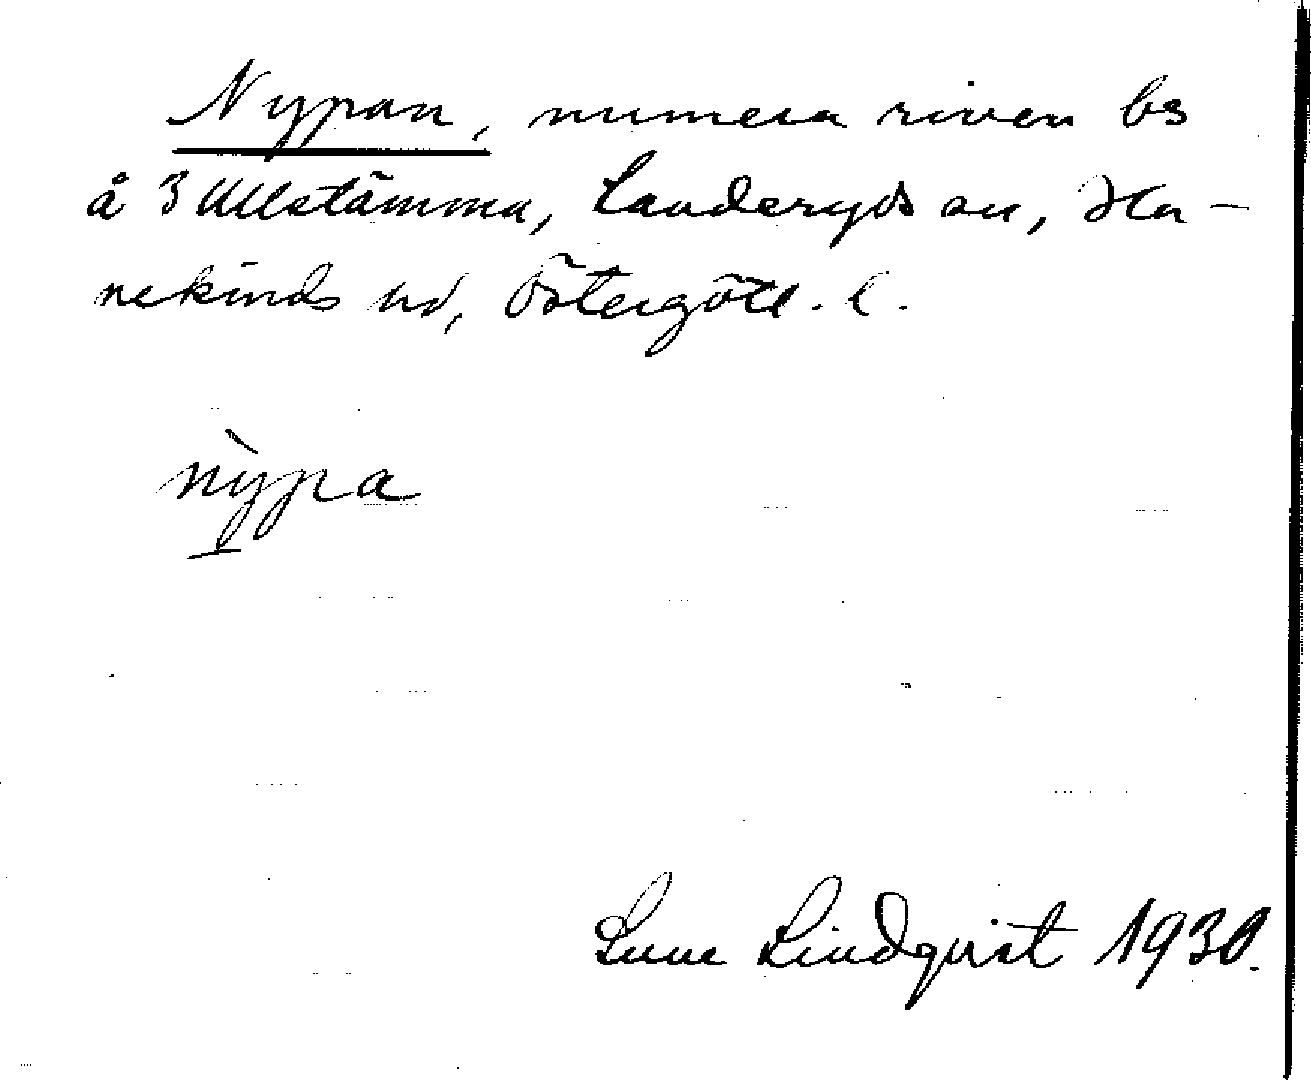 Nypan, numera riven bs
å 3 Ullstämma, Landeryds sn, Ha-
nekinds hd, Östergötl. l.
nỳpa
Sune Lindqvist 1930.